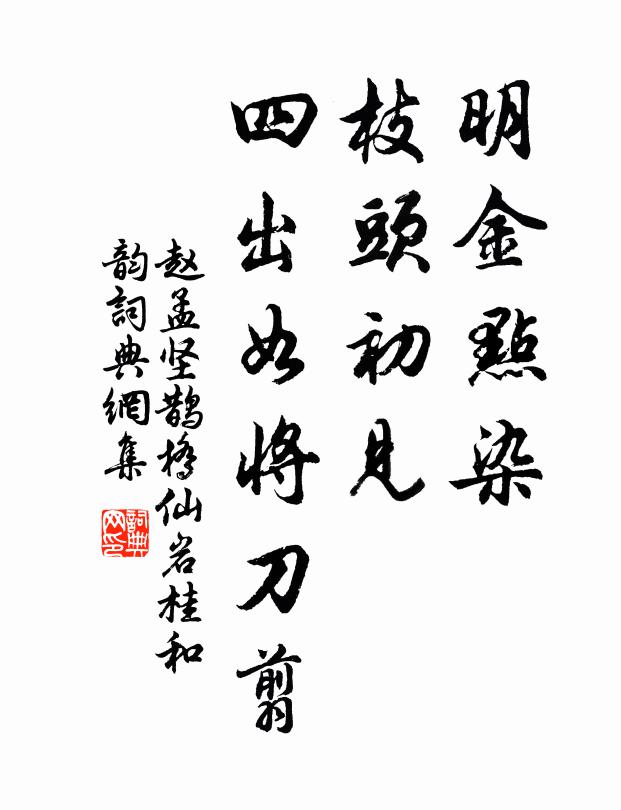 明金點染
枝頭初見
四出如將刀翦
赵孟坚鹊橋仙岩桂和
韵詞典網集
詞典
网印